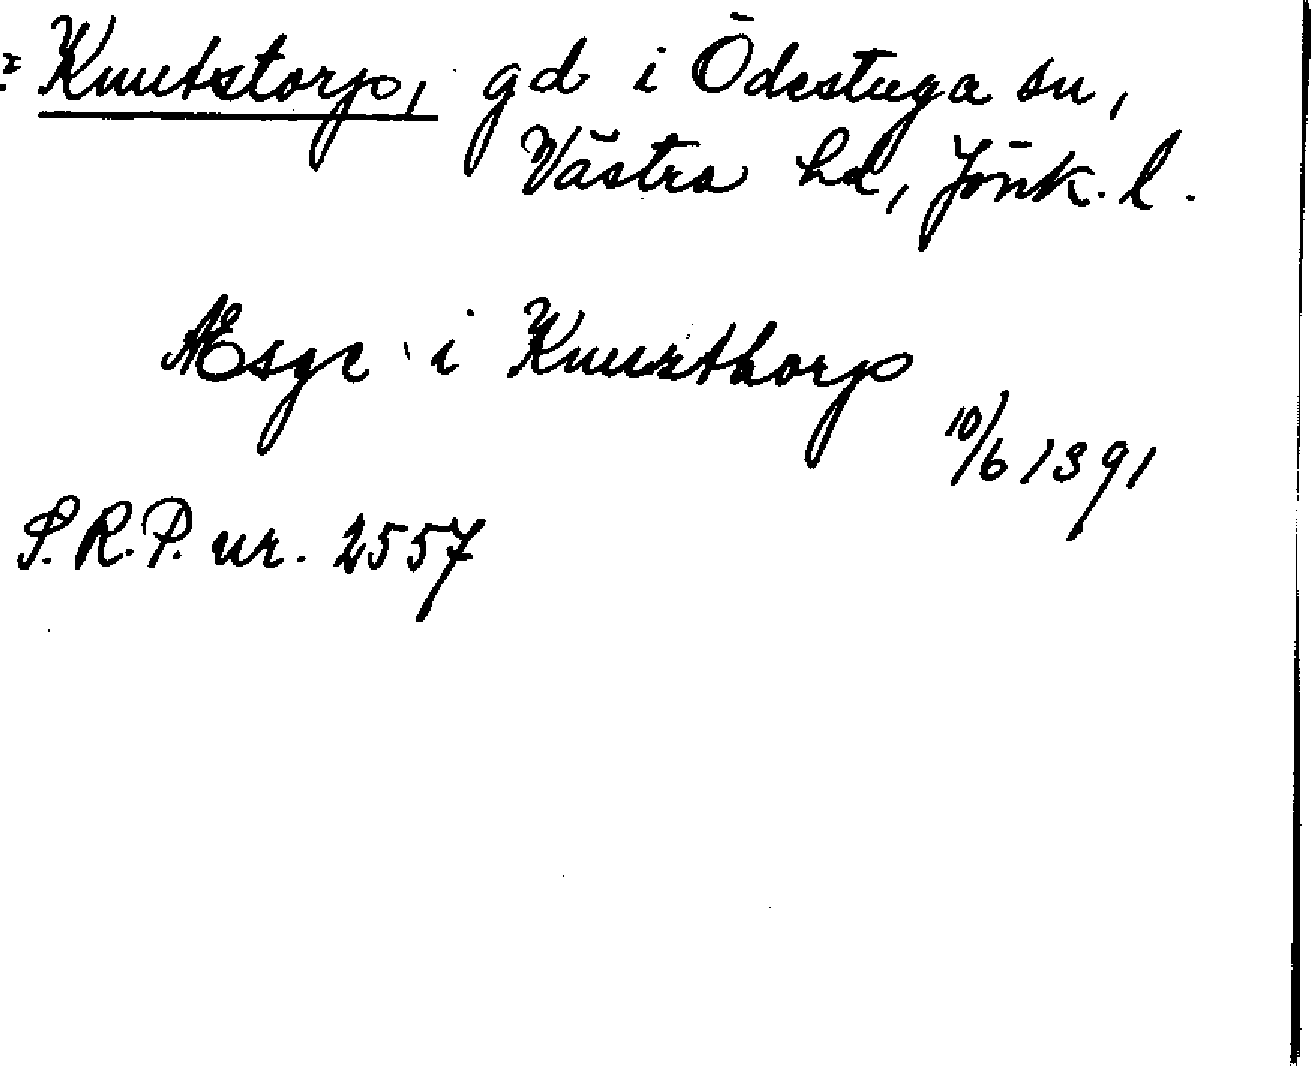 : Knutstorp, gd i Ödestuga sn,
Västra hd, Jönk. l.
Æsge i Knuzthorp
10/6 1391
S.R.P. nr. 2557